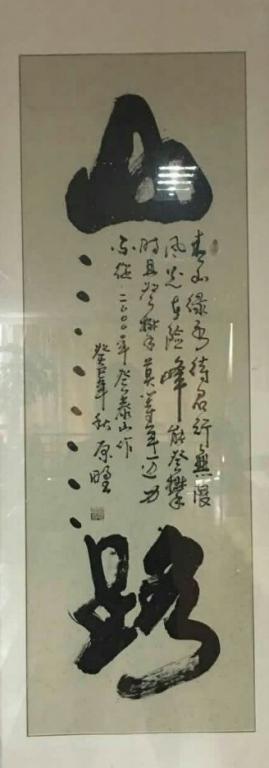 山
青山绿水待君行無限
风光在险峰能登攀
时且登攀莫等年迈力
不從二〇〇〇年登泰山作
癸巳年秋原
路